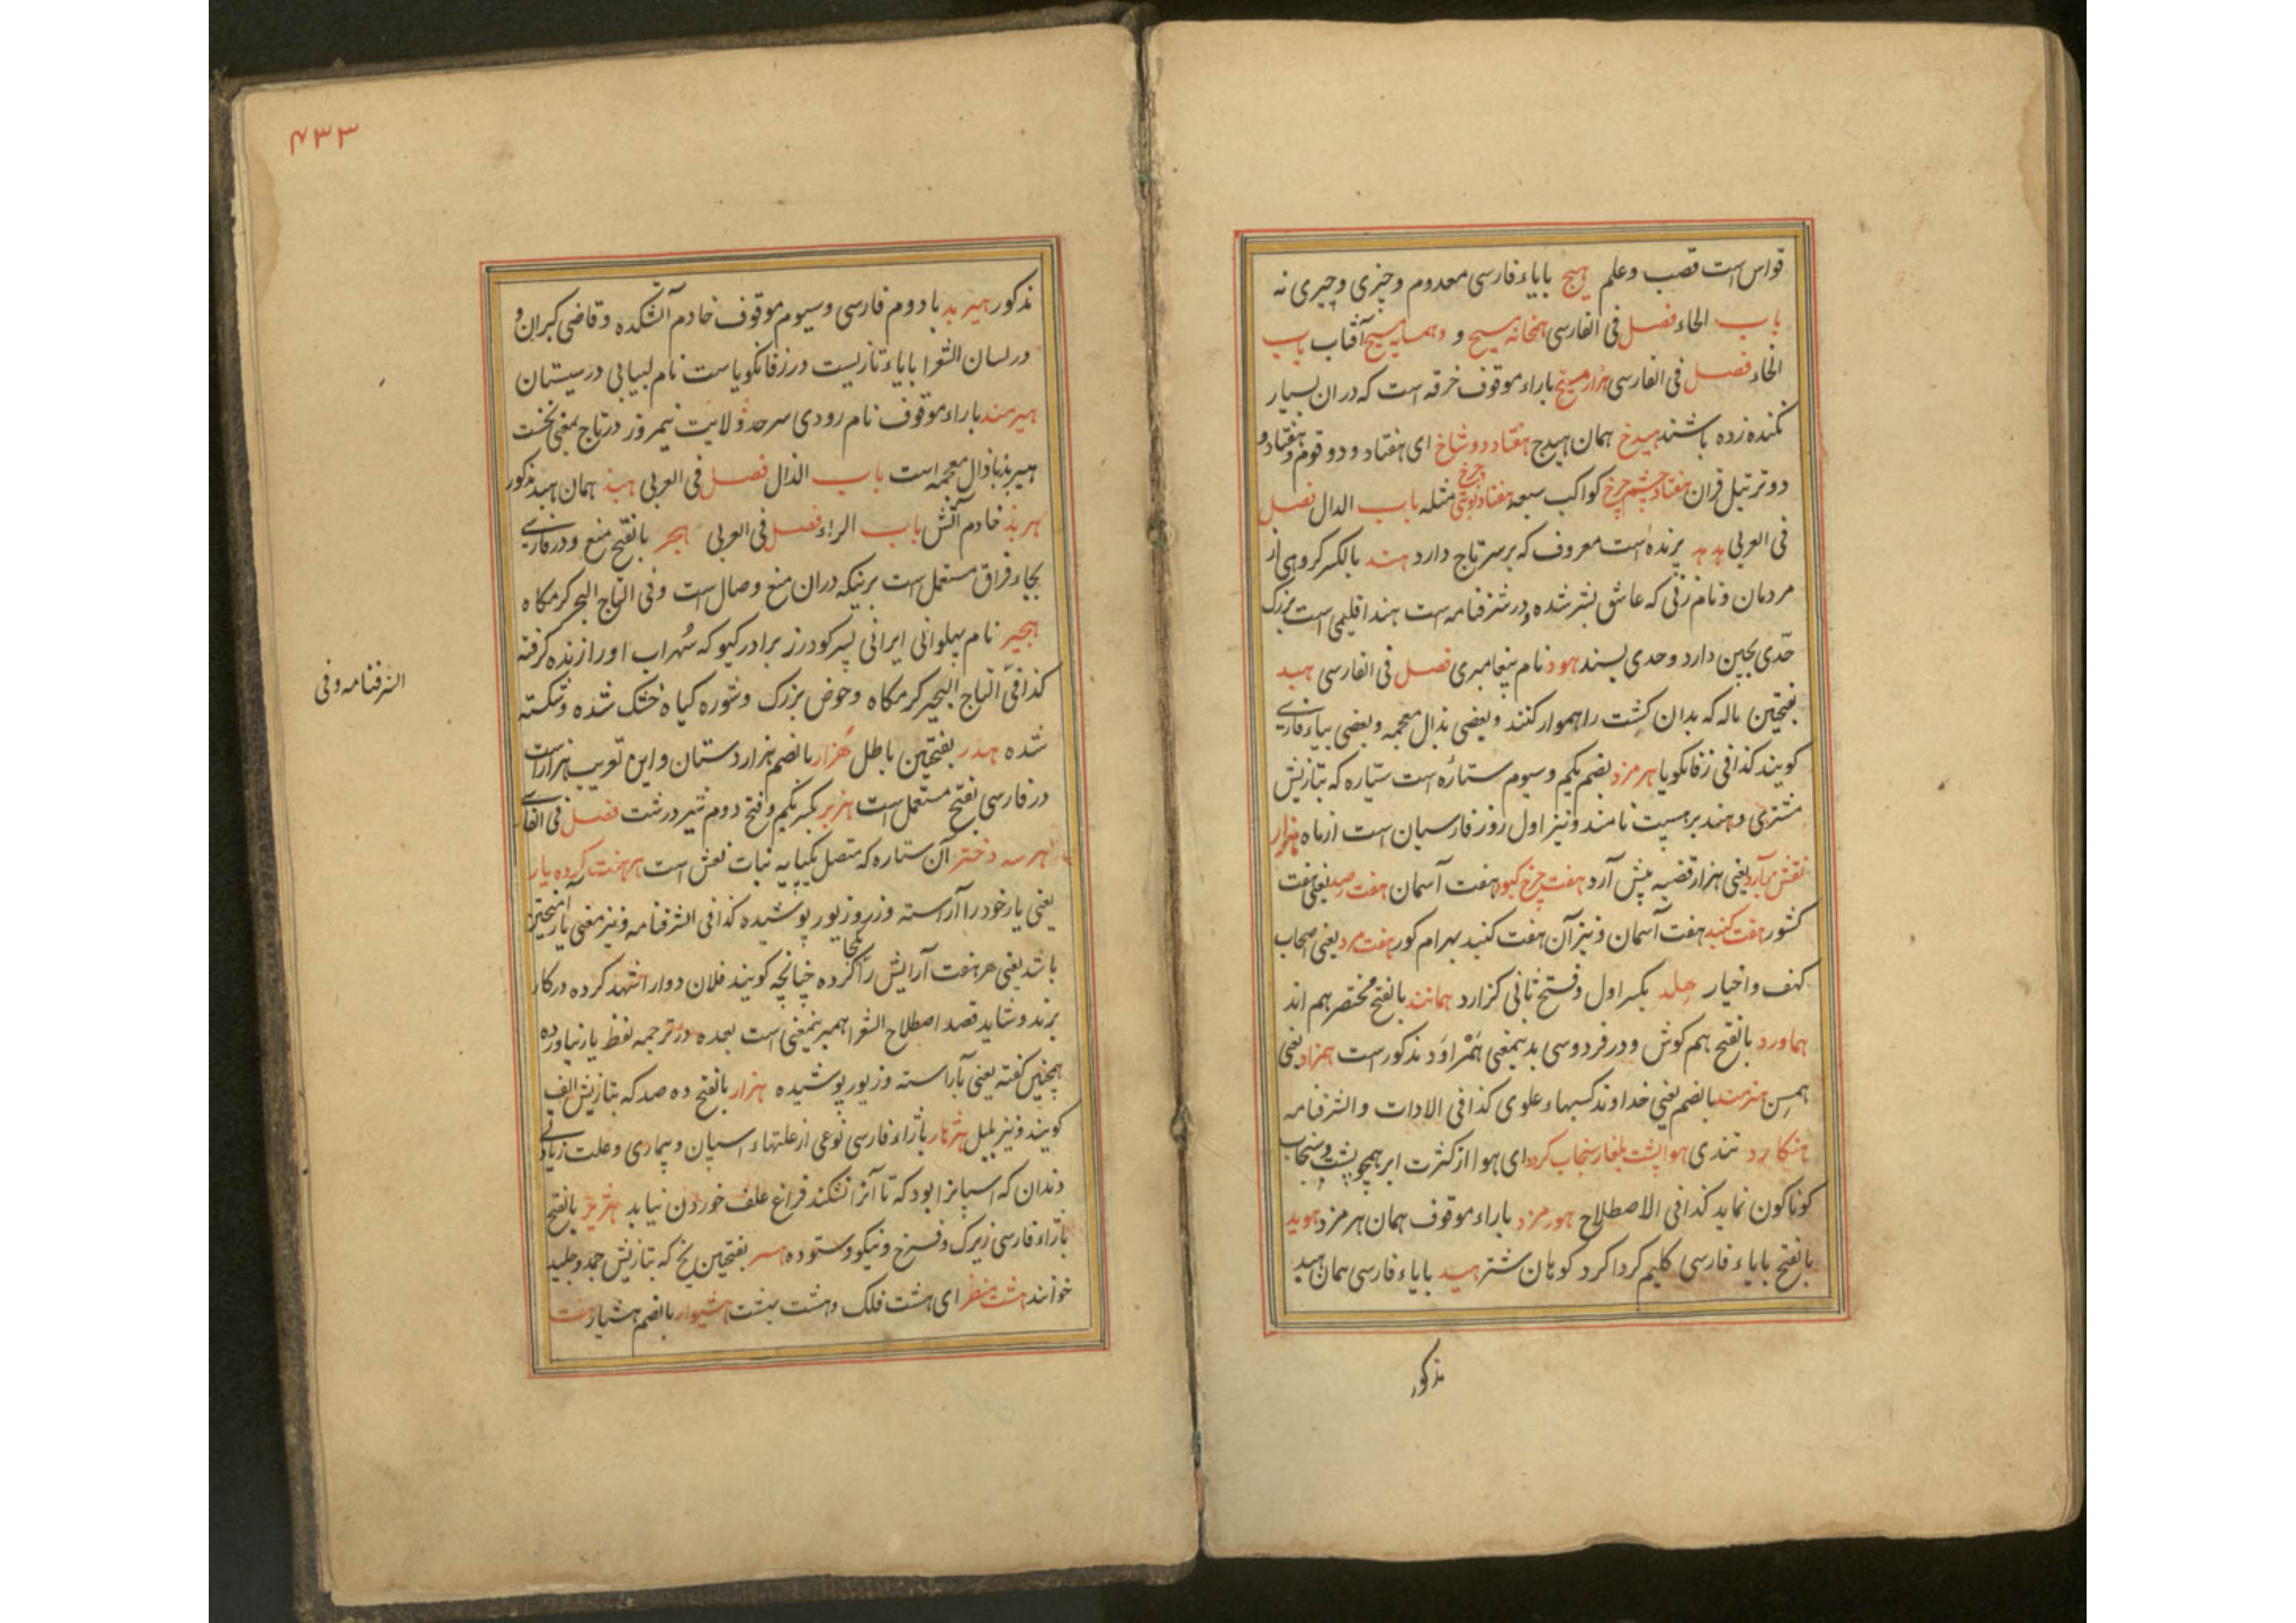 قواس است قصب و علم هیچ بایاء فارسی معدوم و چیزی و چیزی نه
باب الحاء فصل فی الفارسی همخانه مسیح و همسایه مسیح آفتاب باب
الخاء فصل فی الفارسی هزار میخ باراء موقوف خرقه است که دران بسیار
بکنده زده باشند هیدخ همان هیدج هفتاد دو شاخ ای هفتاد و دو قوم و هفتاد و
دو ترتیل قران هفتاد چشم چرخ کواکب سبعه هفتاد چرخ مثله باب الدال فصل
فی العربی هدهد پرنده است معروف که بر سر تاج دارد هند بالکسر کروهی از
مردمان و نام زنی که عاشق بشر شده و در شرفنامه است هند اقلیمی است بزرک
حدی بچین دارد و حدی بسند هود نام پیغامبری فصل فی الفارسی هبد
بفتحین ماله که بدان کشت را هموار کنند و بعضی بذال معجمه و بعضی بیاء فارسی
کویند کذا فی زفانکویا هرمزد بضم یکم و سیوم ستاره است سیاره که بتازیش
مشتری و هند برهسپت نامند و نیز اول روز فارسیان است از ماه هزار
نقش برآرد یعنی هزار قضیه پیش آرد هفت چرخ کبود هفت آسمان هفت رصد یعنی هفت
کشور هفت کنبد هفت آسمان و نیز آن هفت کنبد بهرام کور هفت مرد یعنی اصحاب
کهف و اخیار هلد بکسر اول و فتح ثانی کزارد همانند بالفتح مختصر هم اند
هماورد بالفتح هم کوش و در فردوسی بدینمعنی همراورد مذکور است همزاد یعنی
همسن هنرمند بالضم یعنی خداوند کسبهاء علوی کذا فی الادات و الشرفنامه
هنکارد تندی هوا پشت بلغار سنجاب کرده ای هوا از کثرت ابر همچو پشت و سنجاب
کوناکون نماید کذا فی الاصطلاح هورمزد باراء موقوف همان هرمزد هوید
بالفتح بایاء فارسی کلیم کرداکرد کوهان شتر هید بایاء فارسی همان هبد
مذکور
۴۳۳
مذکور هیربد با دوم فارسی و سیوم موقوف خادم آتشکده و قاضی کبران و
در لسان الشعرا بایاء تازیست در زفانکویا است نام لبیابی در سیستان
هیرمند باراء موقوف نام رودی سرحد ولایت نیمروز در تاج بمعنی نخست
هیربذ با ذال معجمه است باب الذال فصل فی العربی هبذ همان هبد مذکور
هربذ خادم آتش باب الراء فصل فی العربی هجر بالفتح منع و در فارسی
بجاء فراق مستعمل است برنیکه دران منع وصال است و فی التاج الهجر کرمکاه
هجیر نام پهلوانی ایرانی پسر کودرز برادر کیو که سهراب او را زنده کرفته
الشرفنامه و فی
کذا فی التاج الهجیر کرمکاه و حوض بزرک و شوره کیاه خشک شده و شکسته
شده هدر بفتحین باطل هزار بالضم هزار دستان و این تعریب هزار است
در فارسی بفتح مستعمل است هزبر بکسر یکم و فتح دوم شیر درشت فصل فی الفارسی
هر سه دختر آن ستاره که متصل بکپایه نبات نعش است هر هفت کرده یار
یعنی یار خود را آراسته و زر و زیور پوشیده کذا فی الشرفنامه و نیز معنی یار آمیختن
باشد یعنی هر هفت آرایش را یکجا کرده چنانچه کویند فلان دوار اشتهد کرده در کار
برند و شاید قصد اصطلاح الشعرا همبرینمعنی است بعده در ترجمه لفظ یار نیاورده
همچنین کفته یعنی بآراسته و زیور پوشیده هزار بالفتح ده صد که بتازیش الف
کویند و نیز بلبل هژهار بازاء فارسی نوعی از علتهاء اسپان و بیماری و علت زیادتی
دندان که اسپانرا بود که تا آنرا نشکند فراغ علف خوردن نیابد هژیر بالفتح
بازاء فارسی زیرک و فرخ و نیکو و ستوده هسر بفتحین یخ که بتازیش جمد و جلید
خوانند هشت منظر ای هشت فلک و هشت بهشت هشیوار بالضم هشیار هفت